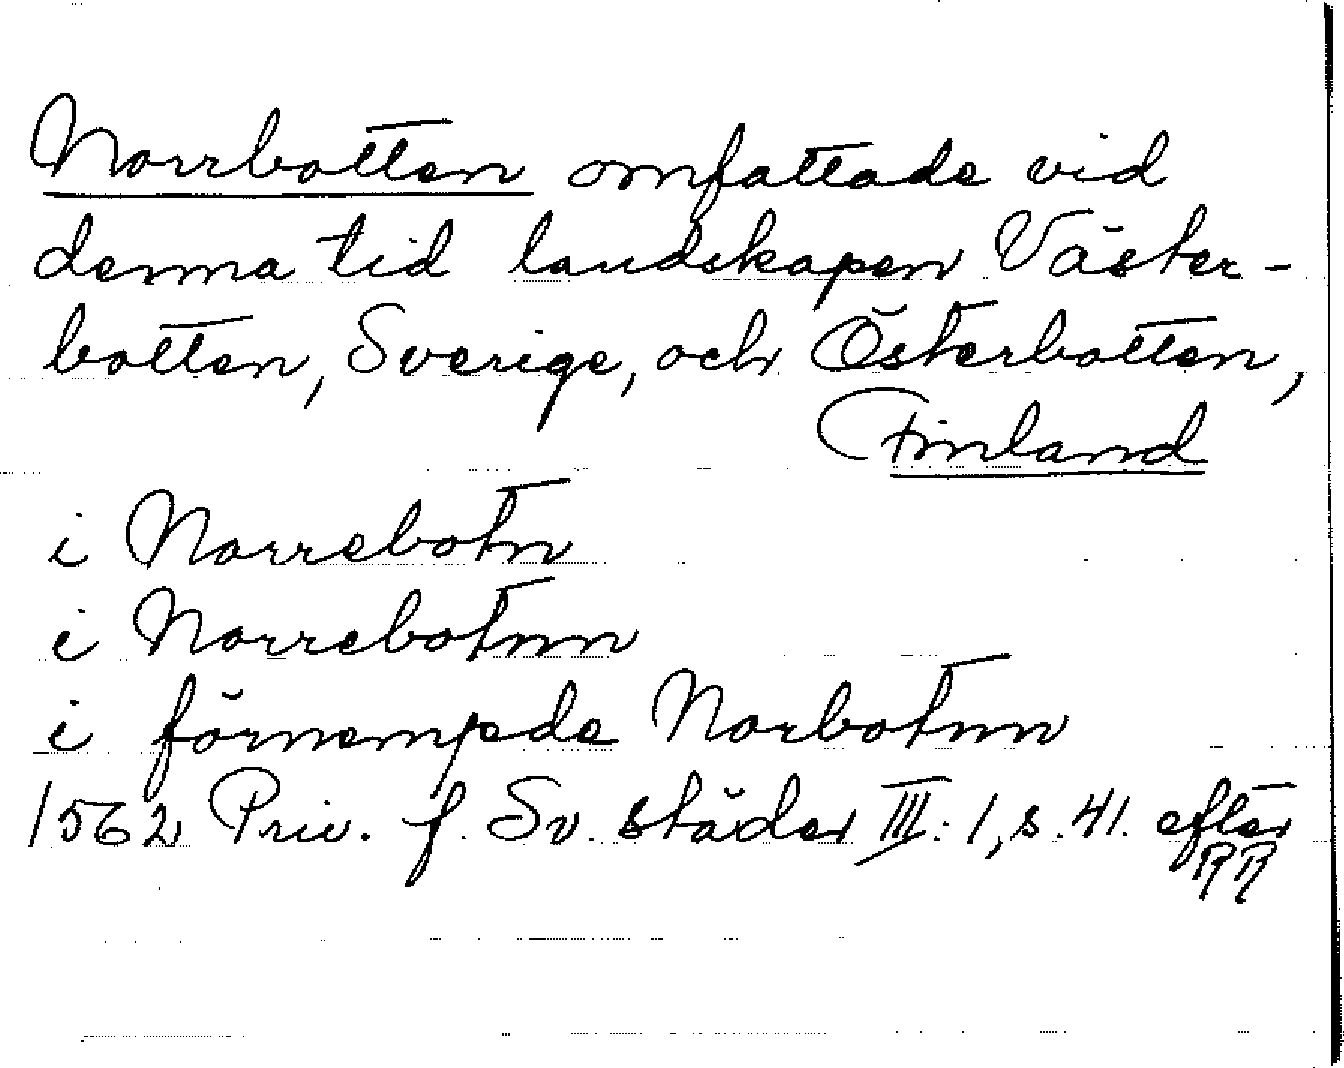 Norrbotten omfattade vid
denna tid landskapen Väster-
botten, Sverige, och Österbotten,
Finland
i Norrebotn
i Norrebotnn
i förnempde Norbotnn
1562 Priv. f. Sv. städer III: 1, s. 41. efter
RR